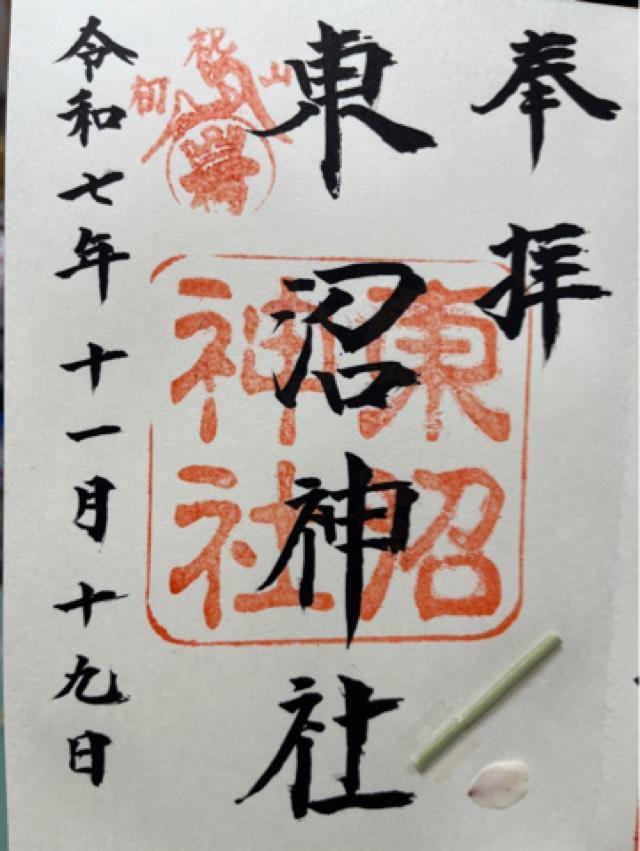 奉拝
東沼神社
令和七年十一月十九日
東沼
神社